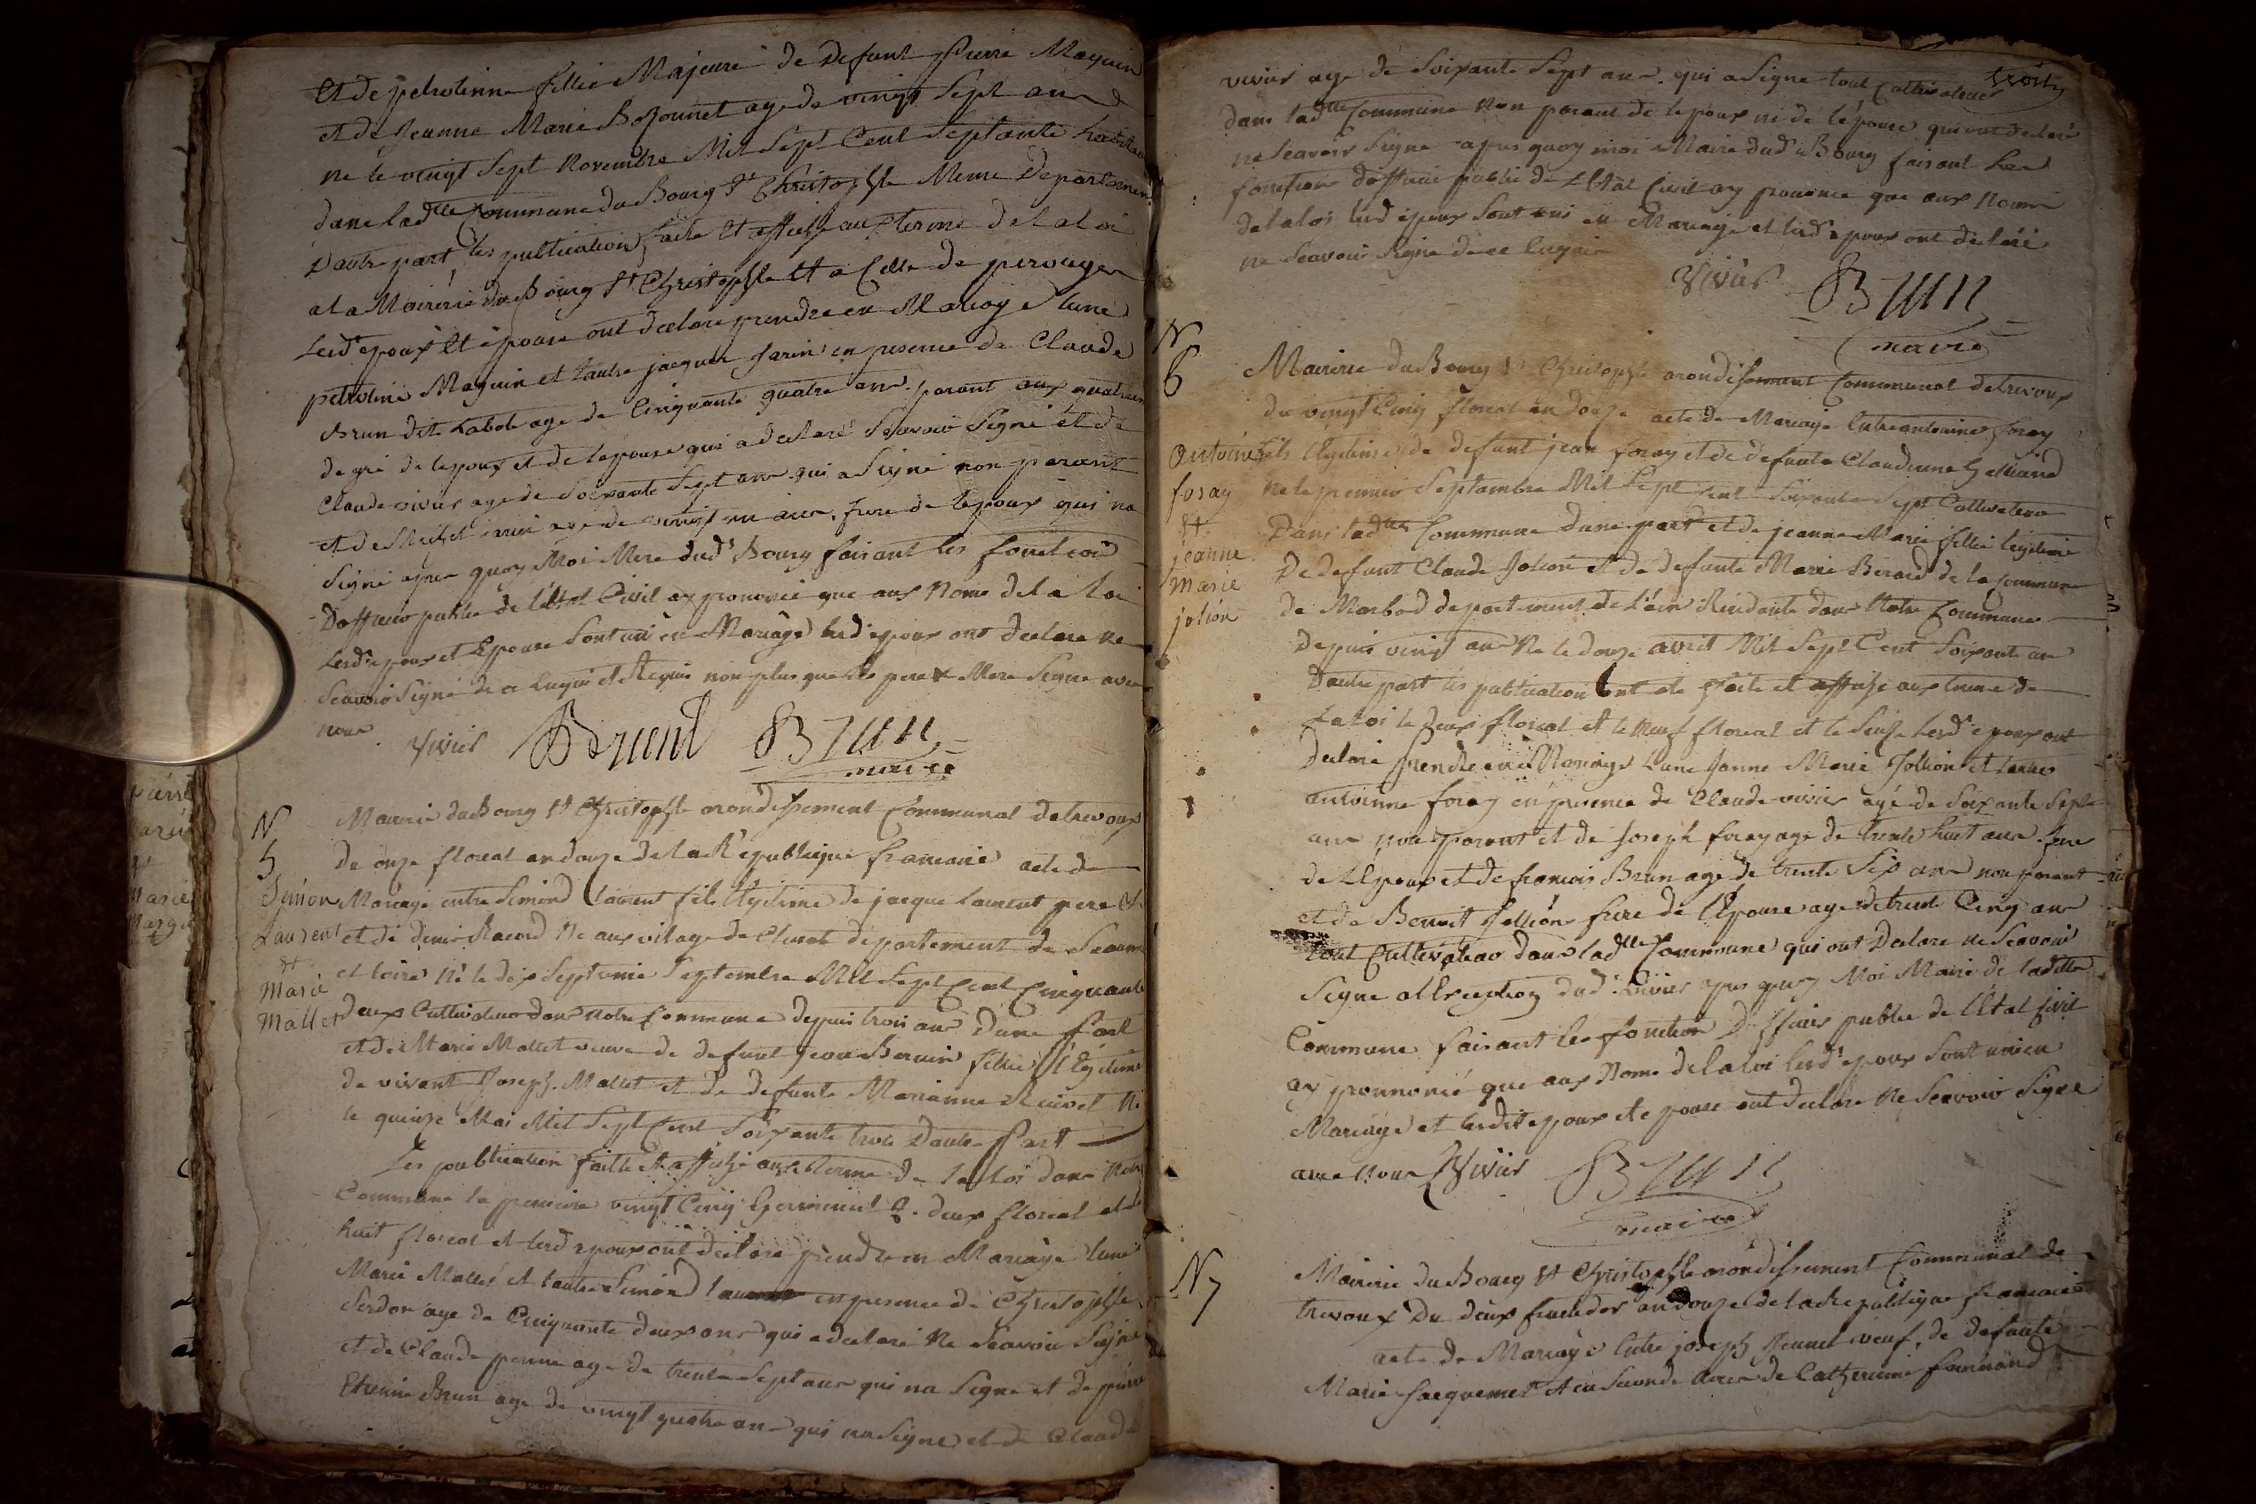 Et de petrotinne fillie Majeure de Defunt Pierre Maquin
et de Jeanne Marie Bojonnet age de vingt Sept ans
né le vingt Sept Novembre Mil Sept Cent Septante habitant
dans lad.tte Commune du Bourg S.t Christophle Meme Departement
Dautre part les publication faite Et affiche aux terme de la loi
a la Mairerie du Bourg S.t Christophle Et a Celle de perouge
Lesd. epoux Et epouse ont declare prendre en Mariage Lune
petrotine Maquin et Lautre jacques farin en presence de Claude
Brun dit Labole age de Cinquante quatre ans parant aux quatrieme
degré de lepoux et de lepouse qui a declaré Scavoir Signé et de
Claude vivier age de Soixante Sept ans qui a Signé non parant
et de age de vingt un ans frere de lepoux qui na
Signé apres quoy Moi Mere dud.t Bourg faisant les fonction
Dofficier public de l'état Civil ay prononcé que aux Nome de la Loi
Lesd. epoux et Epouse Sont uni en Mariage Lesd. epoux ont declare ne
Scavoir Signé de ce Enquis et Requis non plus que les pere et Mere Signe avec
nous vivier Brund Brun
maire
N
5
Simon
Laurent
et
Marie
Mallet
Mairerie du Bourg S.t Christophle arondissement Communal de trevoux
du onze floreal an douze de la République francaise acte de
Mariage entre Simond Laurent fils légitime de jacque Laurent pere et
et de denise Racord Né aux vilage de departement de Seaune
et loire Né le dix Septieme Septembre Mil Sept Cent Cinquante
deux Cultivateur dans notre Commune depuis trois ans Dune part
et de Marie Mallet veuve de defunt jean fillie légitime
de vivant Joseph Mallet et de defunte Marianne Né
le quinze Mai Mil Sept Cent Soixante trois Dautre Part
Les publication faitte Et affiche aux terme de la loi dans Notre
Commune la premiere vingt Cinq Germinal 2. deux floreal et le
huit floreal et lesd. epoux ont declare prendre en Mariage Lune
Marie Mallet et Lautre Simond Laurent en presence de Christophle
Serdon age de Cinquante deux ans qui a declaré Ne Scavoir Signe
et de Claude penne age de trente Sept ans qui na Signe et de pierre
Etienne Brun age de vingt quatre ans qui na Signe et de Claude
trois
vivier age de Soixante Sept ans qui a Signe tout Cultivateur
dans lad.tte Commune Non parent de lepoux ni de lépouse qui ont declaré
ne Scavoir Signe apres quoy moi Maire dud. Bourg faisant Les
fonction dofficier public de l'Etat Civil ay prononce que aux Nome
de la loi lesd. epoux Sont uni en Mariage et lesd. epoux ont declaré
ne Scavoir Signe de ce Enquis
vivier Brun
maire
N
6
Antoine
foray
et
jeanne
Marie
jolion
Mairerie du Bourg S.t Christophle arondissement Communal de trevoux
du vingt Cinq floreal an douze acte de Mariage Entre antoine foray
fils légitime de defunt jean foray et de defunte Claudinne
Né le premier Septembre Mil Sept Cent Soixante Sept Cultivateur
Dans lad.tte Commune dune part et de jeanne Marie fillie légitime
De defunt Claude Jolion et de defunte Marie Berard de la Commune
de departement de l'ain Residante dans Notre Commune
Depuis vingt ans Né le douze avril Mil Sept Cent Soixante
Dautre part les publication ont ete faite et affiche aux terme de
La loi le deux floreal et le neuf floreal et le Seize Lesd. epoux ont
Declaré prendre en Mariage Lune Janne Marie Jollion et Lautre
antoinne foray en presence de Claude vivier agé de Soixante Sept
ans non parent et de Joseph foray age de trente huit ans frere
de lepoux et de francois Brun age de trente Six ans non parent
et de Benoit Jollion frere de l'Epouse age de trente Cinq ans
tout Cultivateur dans lad.tte Commune qui ont Declare Ne Scavoir
Signe a lexception dud. vivier apres quoy Moi Maire de laditte
Commune faisant les fonction Dofficier public de l'Etat Civil
ay prononcé que aux Nome de la loi lesd. epoux Sont uni en
Mariage et lesdit epoux et epouse ont declare Ne Scavoir Signe
avec nous Vivier Brun
maire
N 7
Mairerie du Bourg S.t Christophle arondissement Communal de
trevoux Du deux fructidor an douze de la Republique francaise
acte de Mariage Entre joseph veuf de defunte
Marie Jacquemet et en Seconde noce de Catherine